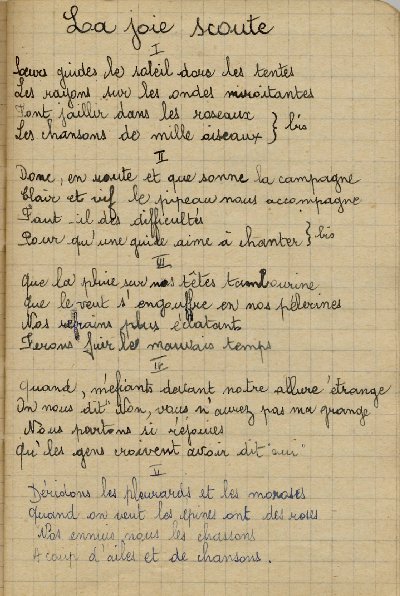 La joie scoute
I
Sœurs guides le soleil dans les tentes
Les rayons sur les ondes miroitantes
Font jaillir dans les roseaux
Les chansons de mille oiseaux } bis
II
Donc, en route et que sonne la campagne
Clair et vif le pipeau nous accompagne
Faut-il des difficultés
Pour qu'une guide aime à chanter } bis
III
Que la pluie sur nos têtes tambourine
Que le vent s'engouffre en nos pèlerines
Nos refrains plus éclatants
Ferons fuir le mauvais temps
IV
Quand, méfiants devant notre allure étrange
On nous dit "Non, vous n'aurez pas ma grange
Nous partons si réjouies
Qu'les gens croivent avoir dit "oui"
V
Déridons les pleurards et les moroses
Quand on veut les épines ont des roses
Nos ennuis nous les chassons
A coup d'ailes et de chansons.